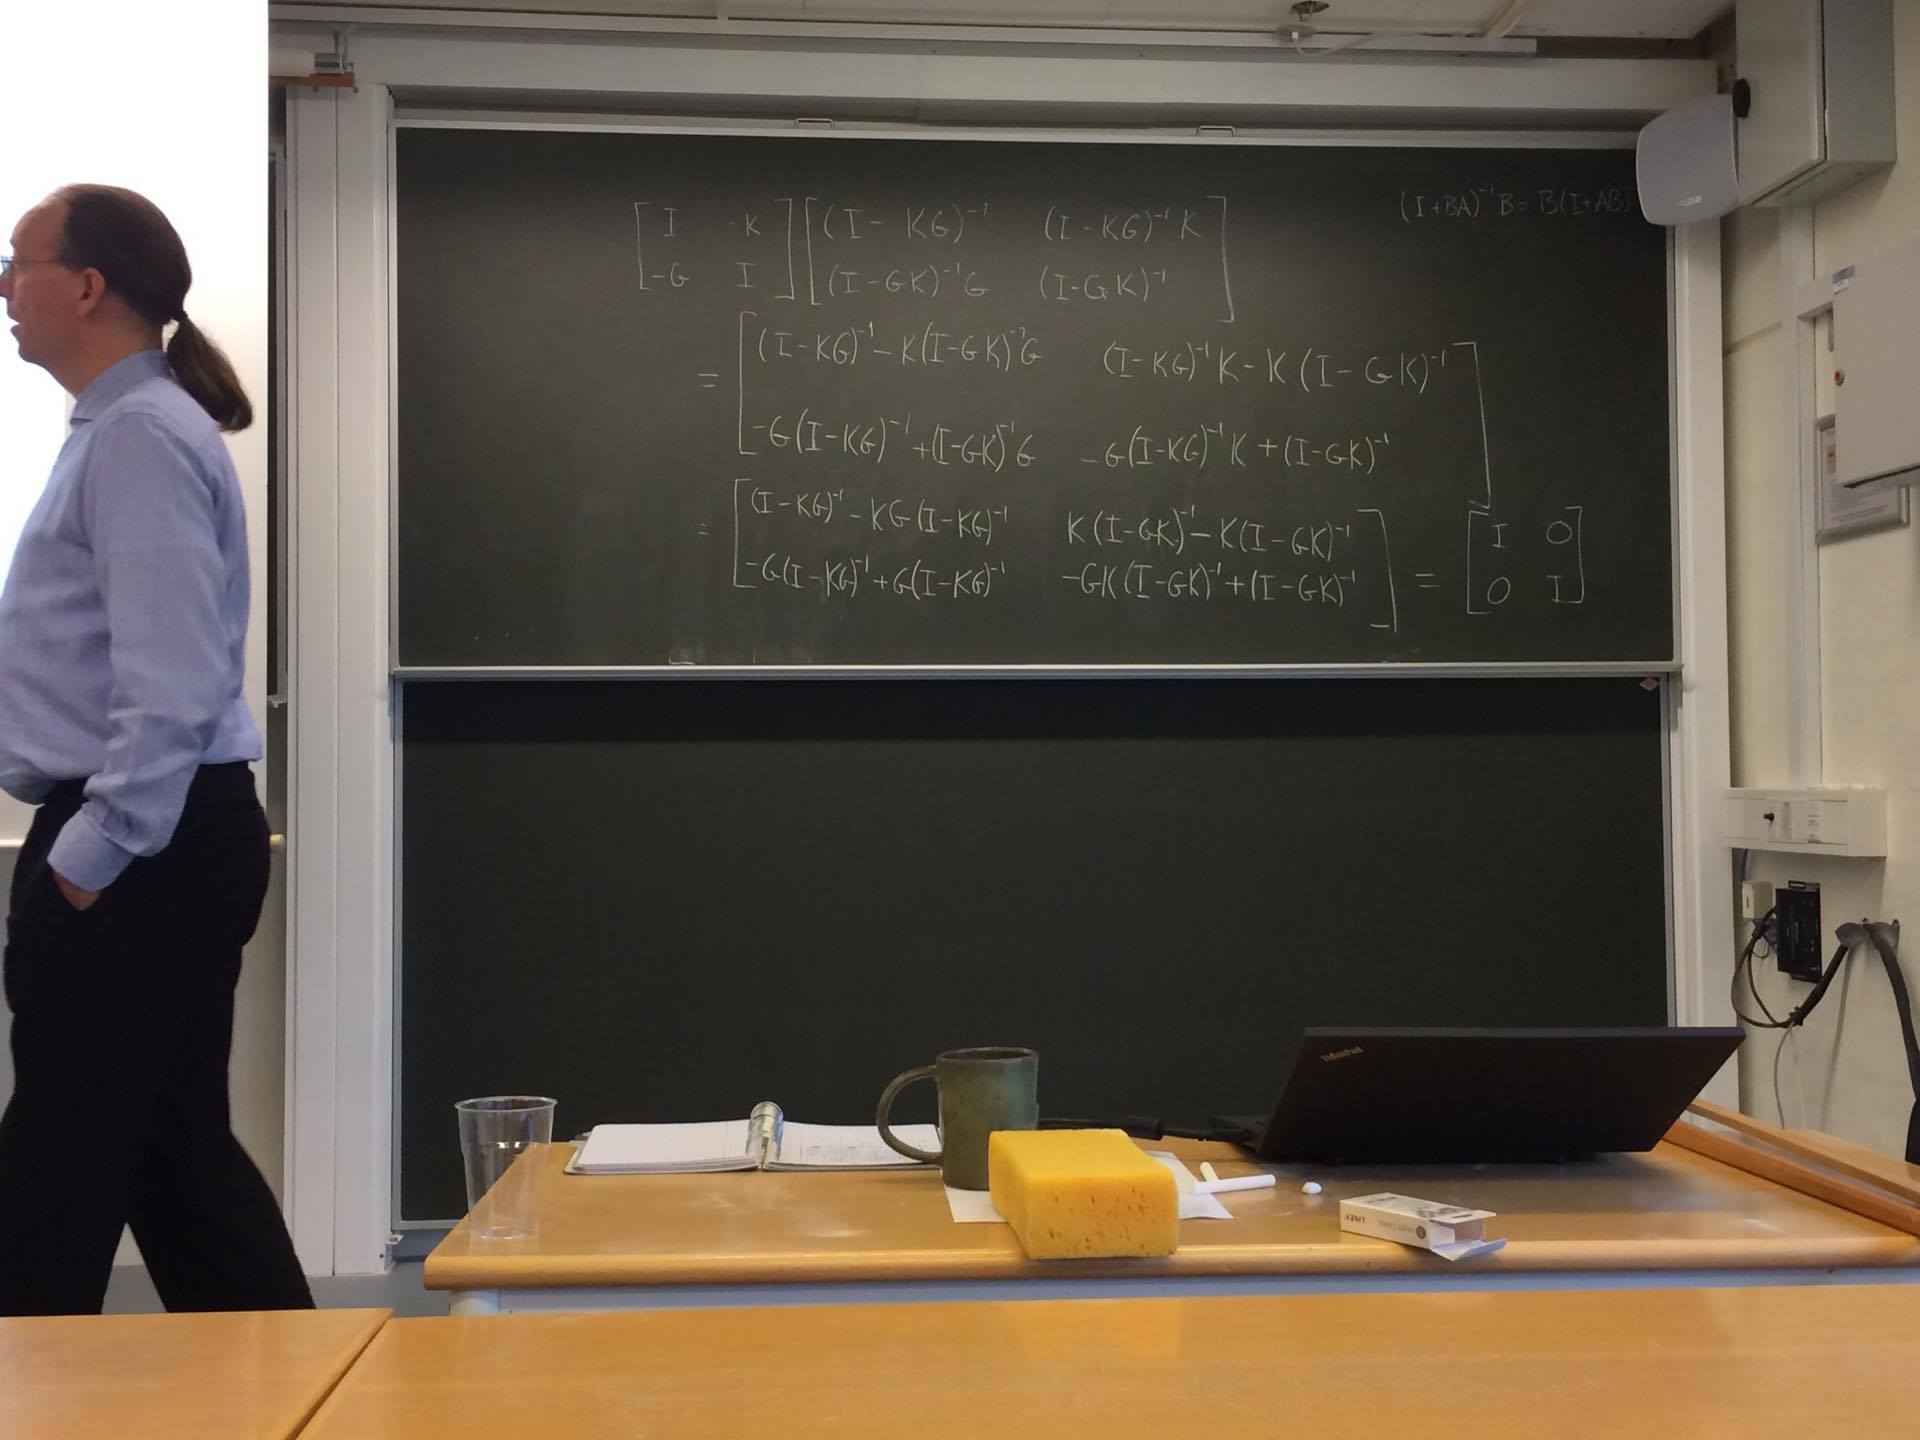 (I+BA)⁻¹B = B(I+AB)
[I -K; -G I] [(I-KG)⁻¹ (I-KG)⁻¹K; (I-GK)⁻¹G (I-GK)⁻¹]
= [(I-KG)⁻¹-K(I-GK)⁻¹G (I-KG)⁻¹K-K(I-GK)⁻¹;
-G(I-KG)⁻¹+(I-GK)⁻¹G -G(I-KG)⁻¹K+(I-GK)⁻¹]
= [(I-KG)⁻¹-KG(I-KG)⁻¹ K(I-GK)⁻¹-K(I-GK)⁻¹;
-G(I-KG)⁻¹+G(I-KG)⁻¹ -GK(I-GK)⁻¹+(I-GK)⁻¹] = [I 0; 0 I]
ThinkPad